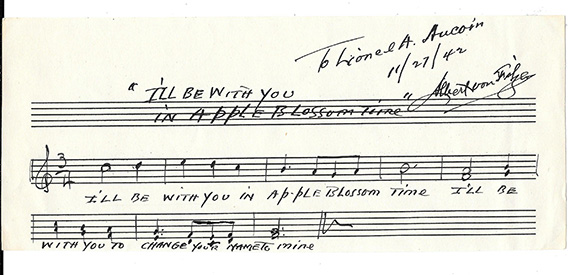 To Lionel A. Aucoin
11/27/42
"I'LL BE WITH YOU
IN APPLE BLOSSOM TIME"
Albert von Tilzer
3/4
I'LL BE WITH YOU IN APPLE BLOSSOM TIME I'LL BE
WITH YOU TO CHANGE YOUR NAME TO MINE